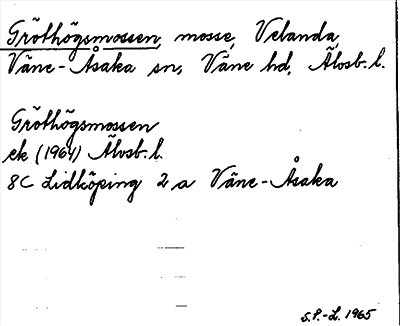 Gröthögsmossen, mosse, Velanda,
Väne-Åsaka sn, Väne hd, Älvsb. l.
Gröthögsmossen
ek (1964) Älvsb. l.
8C Lidköping 2 a Väne-Åsaka
S.P.-L. 1965